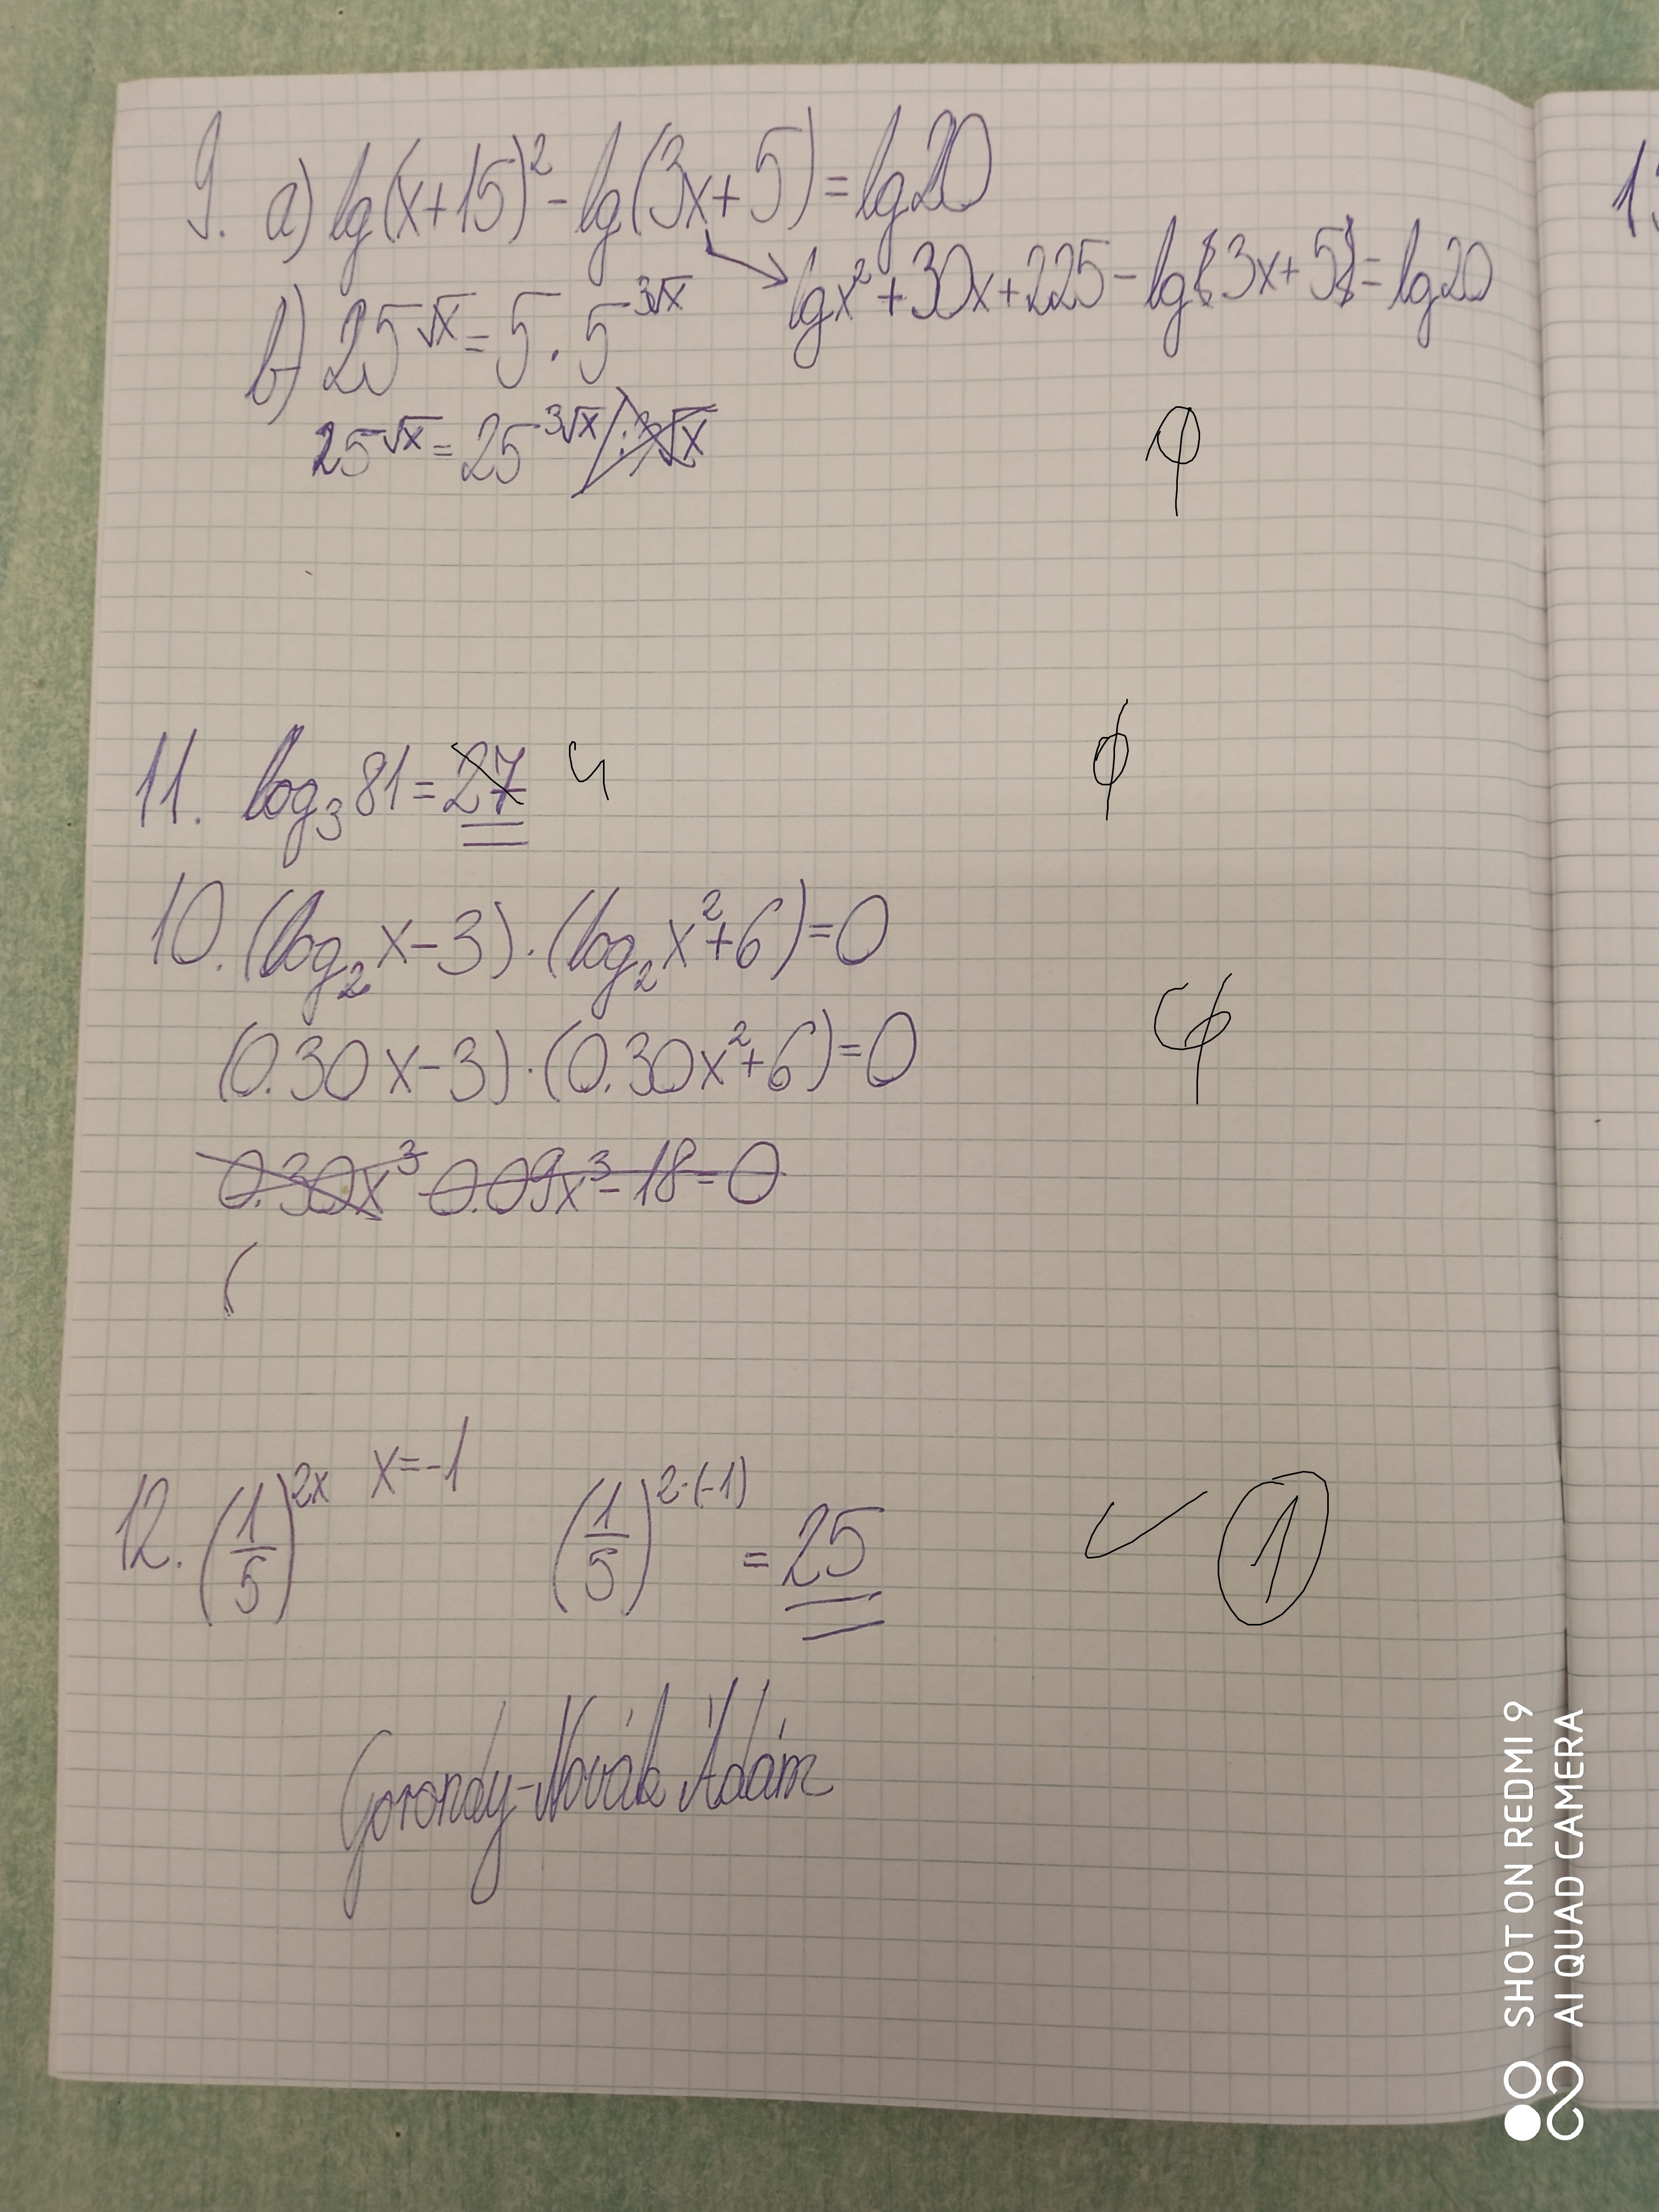 9. a) lg(x+15)² - lg(3x+5) = lg20
lgx² + 30x + 225 - lg(3x+5) = lg20
b) 25^√x = 5 · 5^3√x
25^√x = 25^3√x / : 3√x
11. log₃ 81 = 27 4
10. (log₂ x - 3) · (log₂ x² + 6) = 0
(0.30x - 3) · (0.30x² + 6) = 0
0.30x³ 0.09x³ - 18 = 0
(
12. (1/5)^2x x = -1 (1/5)^2·(-1) = 25 1
Gorondy-Novák Ádám
SHOT ON REDMI 9
AI QUAD CAMERA